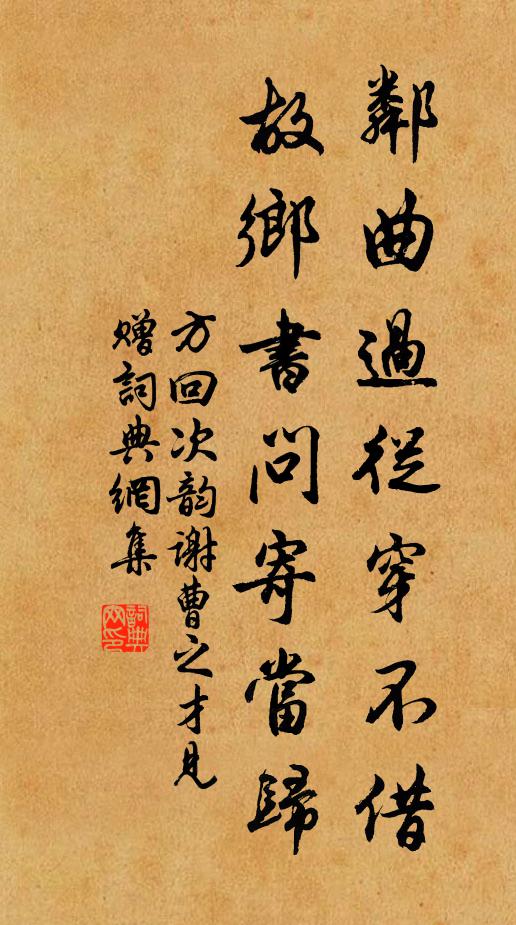 鄰曲過從穿不借
故鄉書問寄當歸
方回次韵謝曹之才見
贈詞典網集
詞典網印